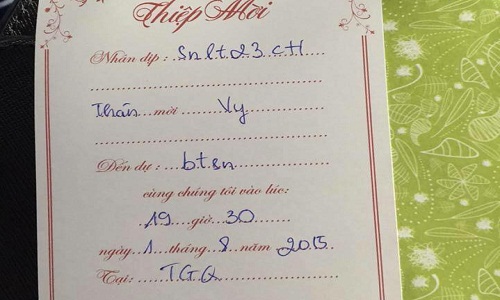 Thiệp Mời
Nhân dịp: Sn lt 23 cH
Thân mời Vy
Đến dự: b.t.sn
cùng chúng tôi vào lúc:
19 giờ 30
ngày 1 tháng 8 năm 2015
Tại: T.G.Q